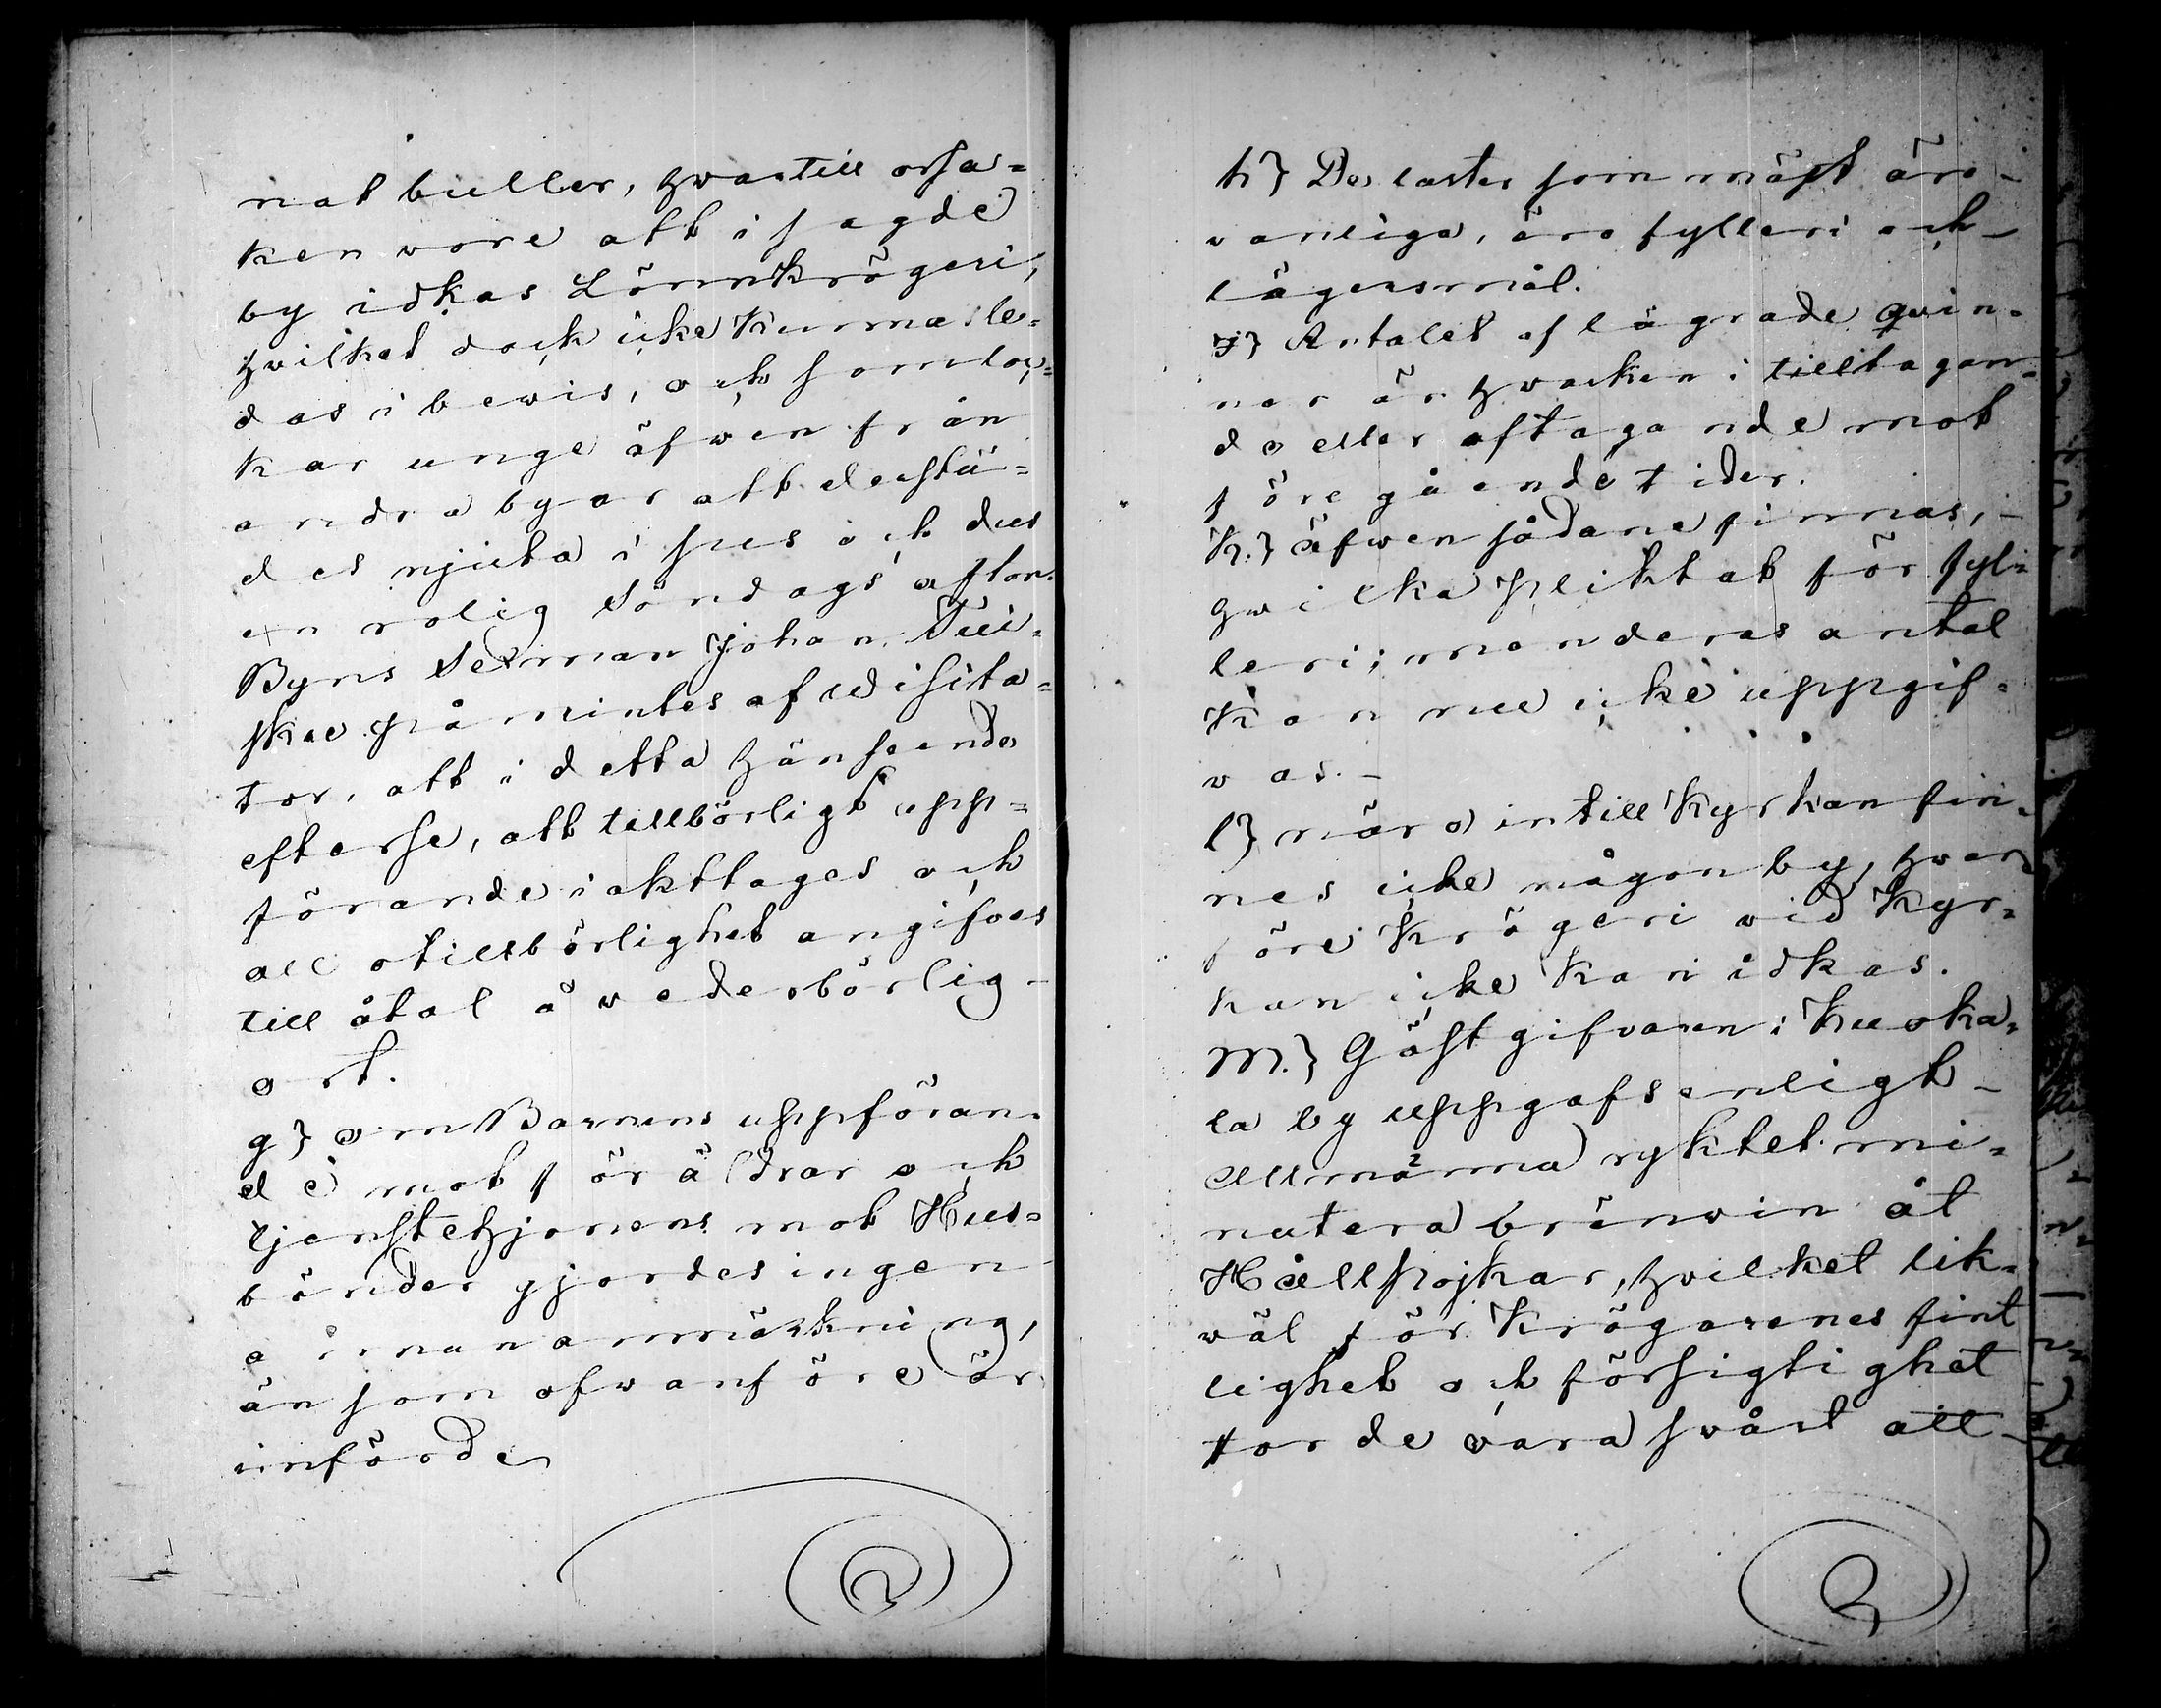 nat buller, hvartill orsa=
ken vore att i sagde
by idkas Lönnkrögeri,
hvilket dock icke kunna le=
das i bewis, och som loc=
kar unge äfwen från
andra byar att derstä=
des njuta i sus och dus
en rolig Söndags afton.
Byns Sexman Johan
skue påmintes af Wisita=
tor, att i detta hänseende
efterse, att tillbörligt upp=
förande iakttages och
all otillbörlighet angifves
till åtal å vederbörlig
ort.
g} om Barnens uppföran=
de mot föräldrar och
tjenstehjonens mot Hus=
bönder gjordes ingen
annan anmärkning,
än som ofvanföre är
införde
h} De laster som mäst äro
vanliga, äro fylleri och
lägersmål.
j} Antalet af lägrade qvin=
nor är hvarken i tilltagan=
de eller aftagande mot
föregående tider.
k.} äfwen sådane finnas,
hvilka pliktat för fyl=
leri; men deras antal
kan nu icke uppgif=
vas.
l} nära intill kyrkan fin=
nes icke någon by, hvar
före krögeri vid kyr=
kan icke kan idkas.
M.} Gästgifvaren i Kuoka=
la by uppgafs enligt
allmänna ryktet mi=
nutera bränvin åt
Hållpojkar, hvilket lik=
wäl för krögarenes fint
lighet och försigtighet
torde vara svårt att